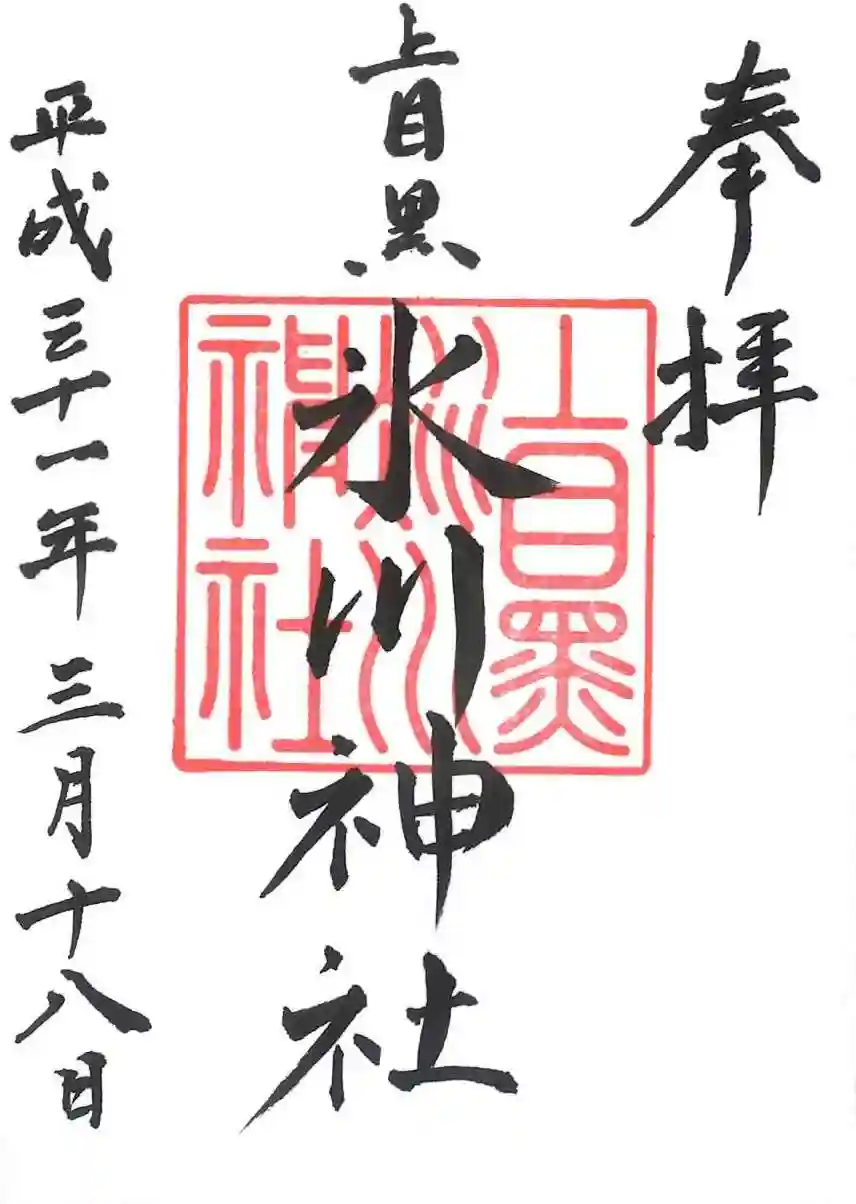 奉拝
上目黒
氷川神社
上目黒
氷川
神社
平成三十一年三月十八日